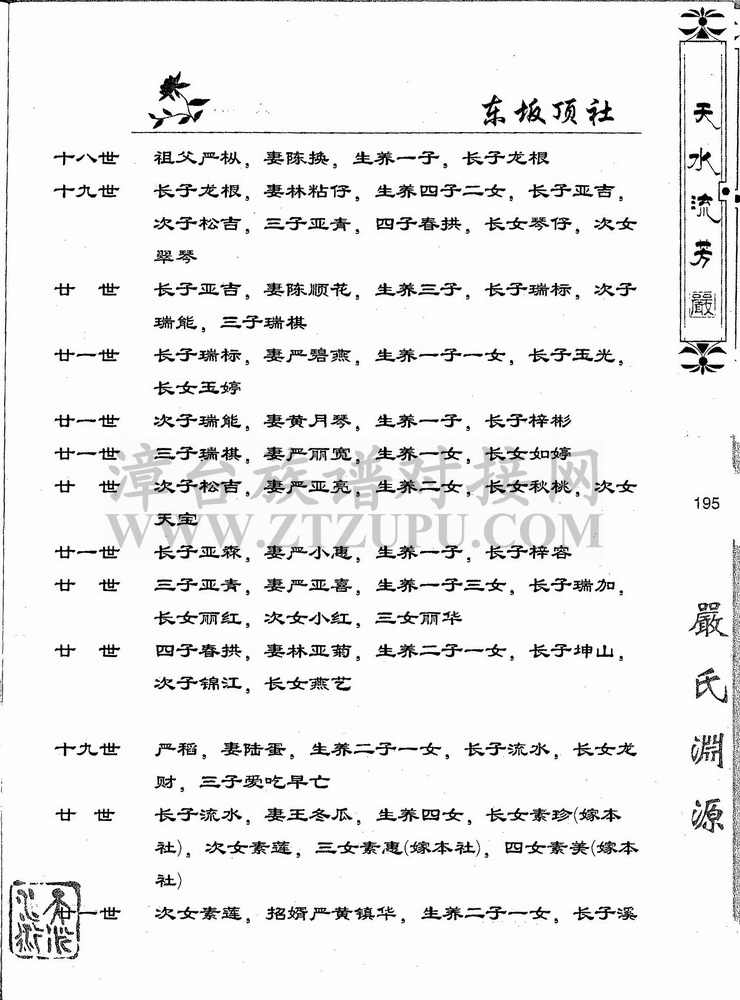 东坂顶社
十八世 祖父严枞，妻陈换，生养一子，长子龙根
十九世 长子龙根，妻林粘仔，生养四子二女，长子亚吉，
次子松吉，三子亚青，四子春拱，长女琴仔，次女
翠琴
廿世 长子亚吉，妻陈顺花，生养三子，长子瑞标，次子
瑞能，三子瑞棋
廿一世 长子瑞标，妻严碧燕，生养一子一女，长子玉光，
长女玉婷
廿一世 次子瑞能，妻黄月琴，生养一子，长子梓彬
廿一世 三子瑞棋，妻严丽宽，生养一女，长女如婷
廿世 次子松吉，妻严亚亮，生养二女，长女秋桃，次女
天宝
廿一世 长子亚森，妻严小惠，生养一子，长子梓容
廿世 三子亚青，妻严亚喜，生养一子三女，长子瑞加，
长女丽红，次女小红，三女丽华
廿世 四子春拱，妻林亚菊，生养二子一女，长子坤山，
次子锦江，长女燕艺
十九世 严稻，妻陆蛋，生养二子一女，长子流水，长女龙
财，三子爱吃早亡
廿世 长子流水，妻王冬瓜，生养四女，长女素珍(嫁本
社)，次女素莲，三女素惠(嫁本社)，四女素美(嫁本
社)
廿一世 次女素莲，招婿严黄镇华，生养二子一女，长子溪
天水流芳
嚴
195
嚴氏淵源
漳台族谱对接网
WWW.ZTZUPU.COM